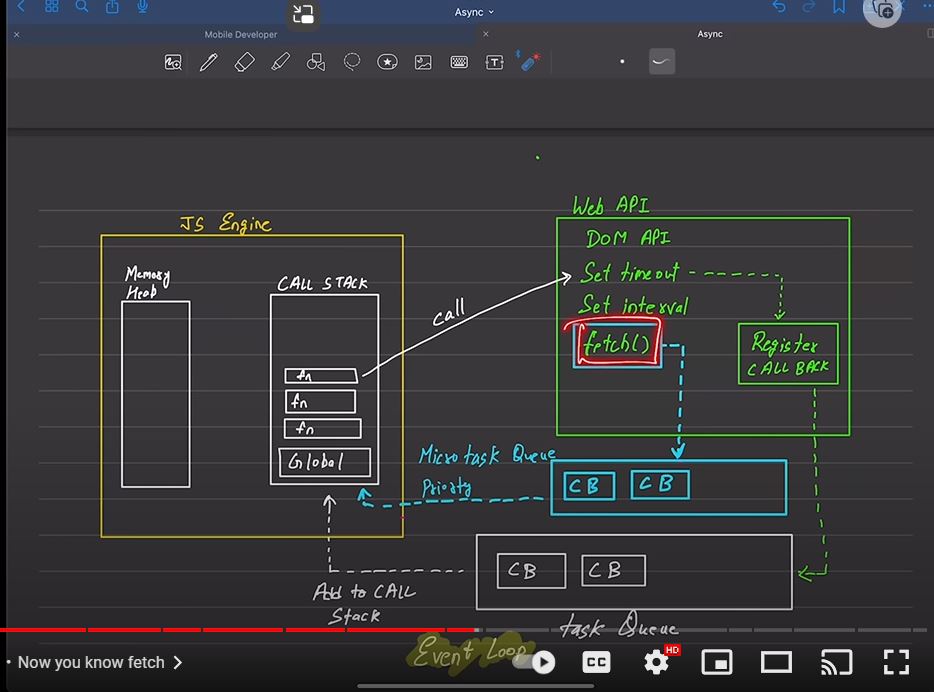 Async
Mobile Developer
Async
JS Engine
Memory
Heap
CALL STACK
fn
fn
fn
Global
call
Web API
DOM API
Set timeout
Set interval
fetch()
Register
CALL BACK
Microtask Queue
Priorty
CB CB
CB CB
Add to CALL
Stack
task Queue
Event Loop
Now you know fetch
CC
HD